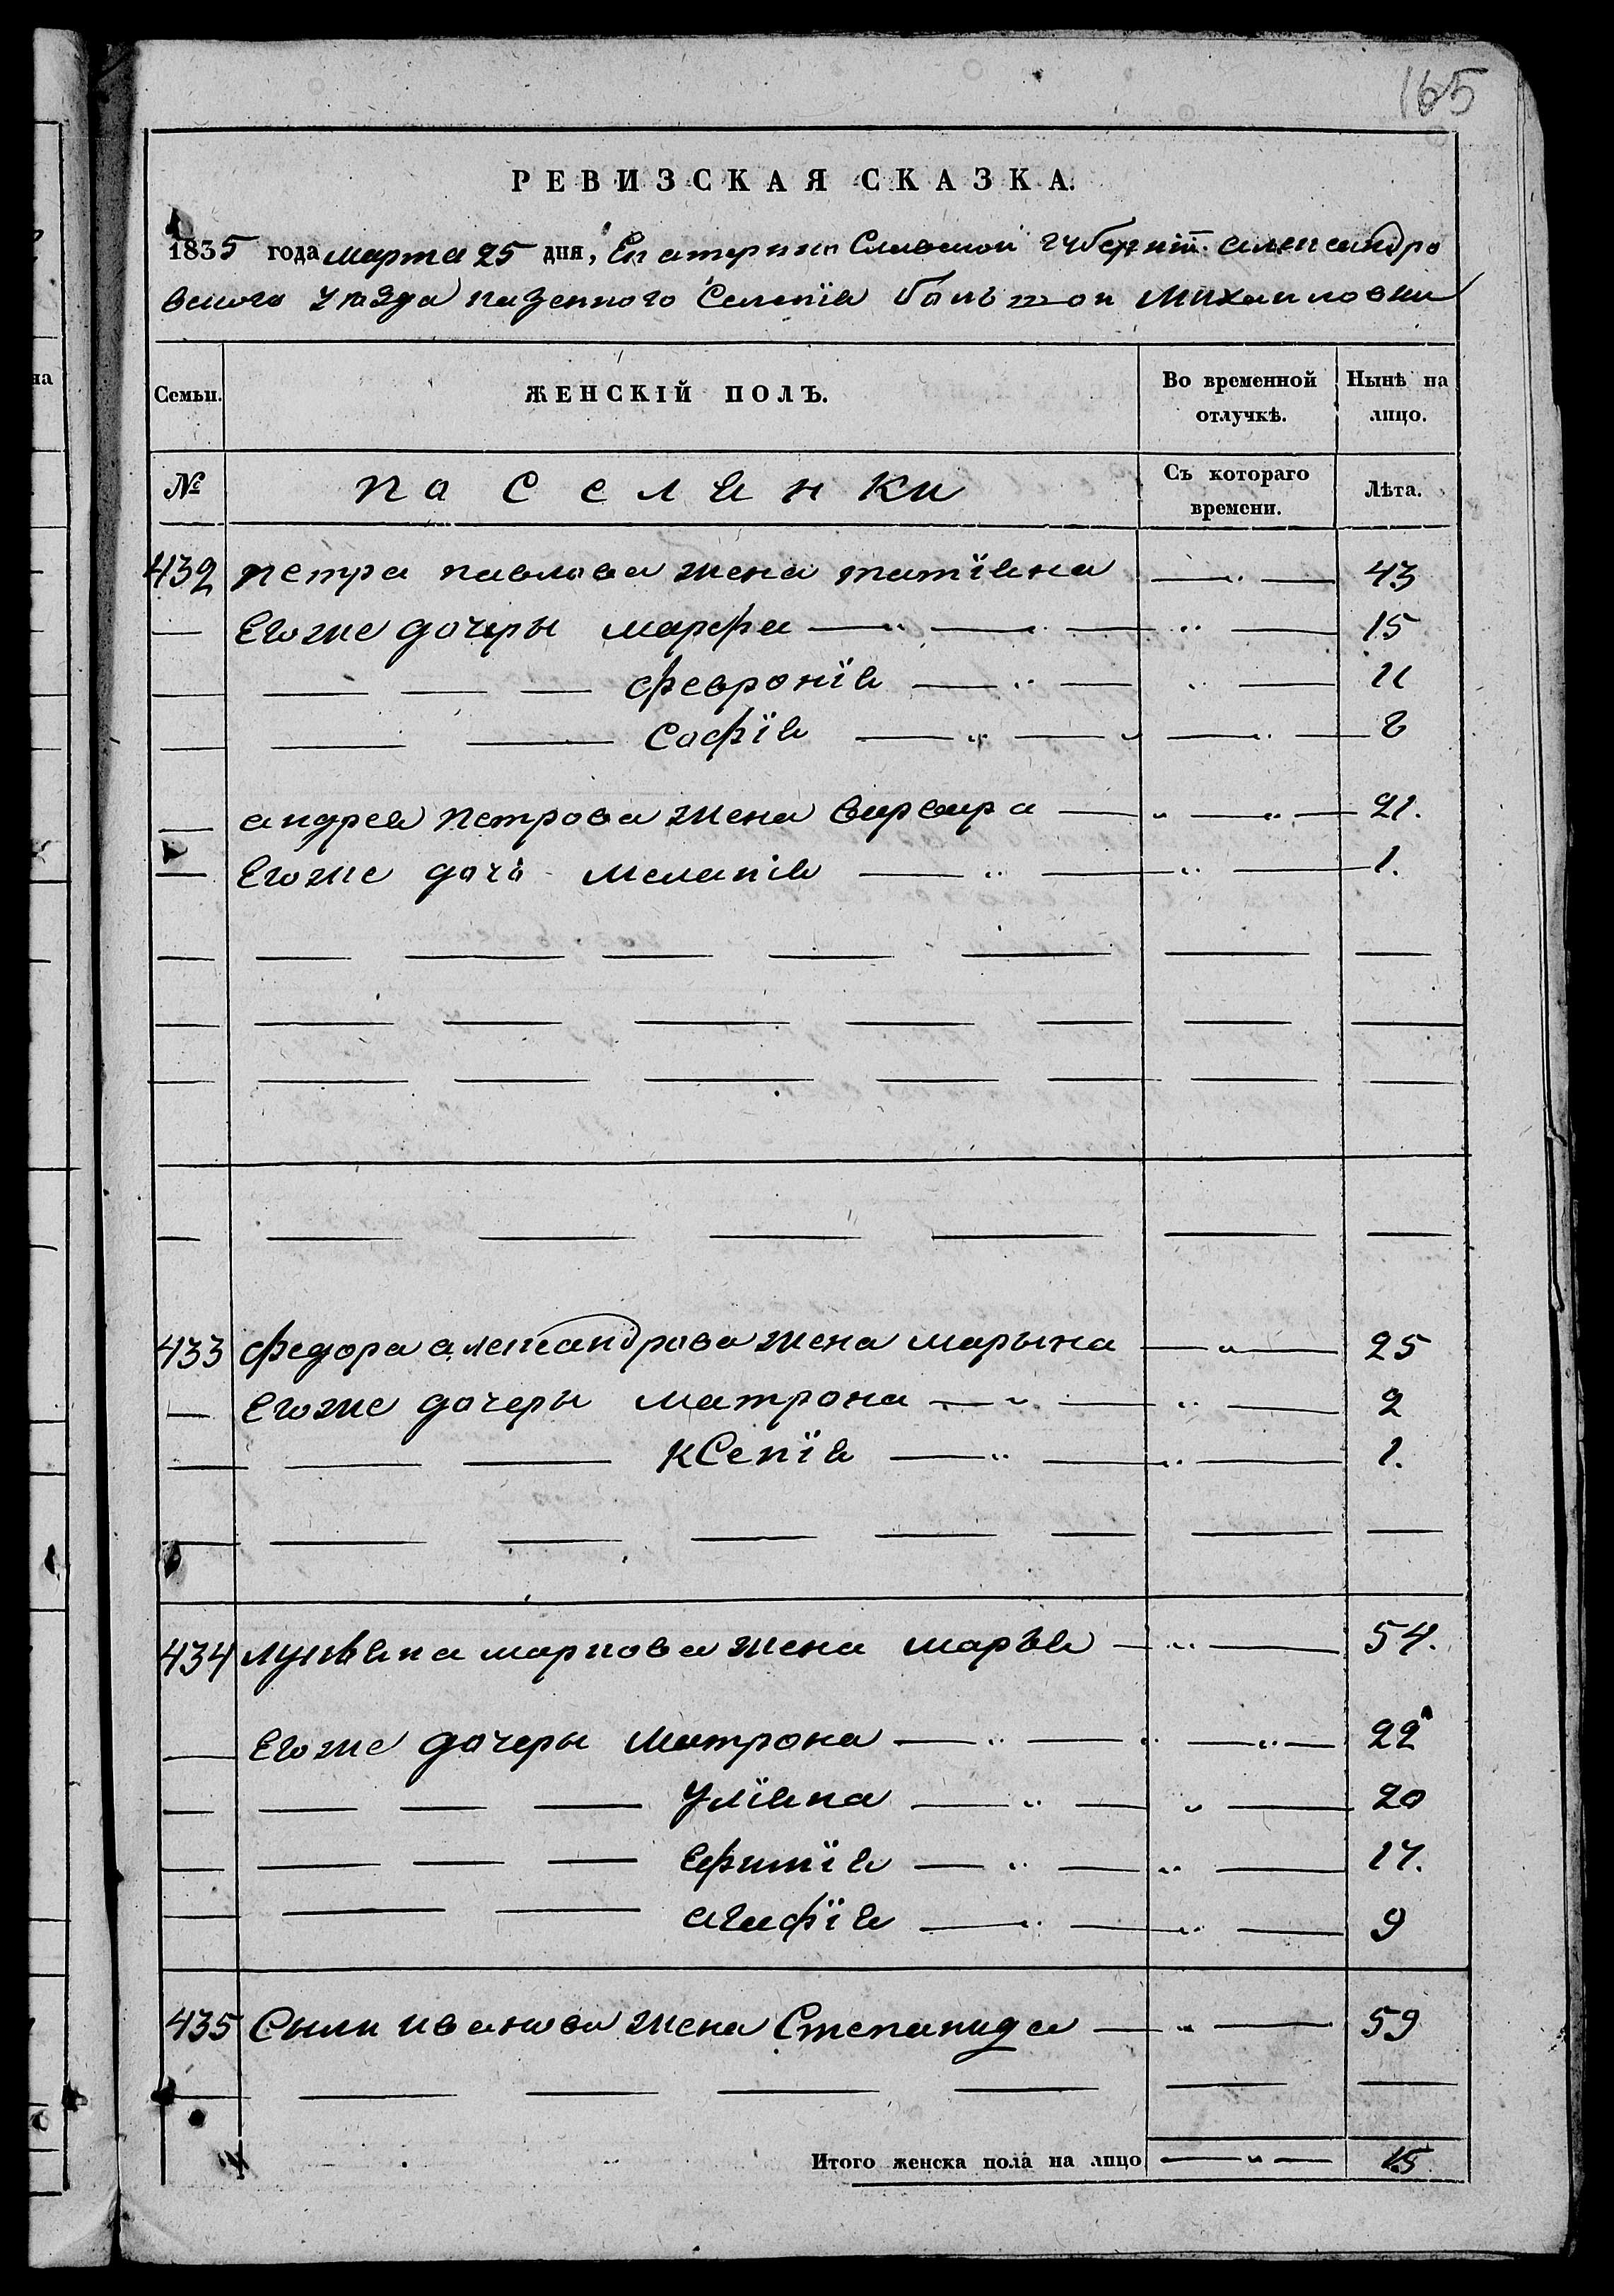 165
РЕВИЗСКАЯ СКАЗКА.
1835 года марта 25 дня, Екатерино Славской губернии Александро
вского уѣзда казенного Селенїя больтой Михаиловки
Семьи. ЖЕНСКІЙ ПОЛЪ. Во временной отлучкѣ. Нынѣ на лицо.
№ па Селянки Съ котораго времени. Лѣта.
432 петра павлова жена татїяна — 43
— Егоже дочеры марфа — 15
— — — — февронїя — 11
— — — Софїя — 8
— андрея петрова жена варвара — 21.
— Егоже дочь меланїя — 1.
433 федора александрова жена марына — 25
— Егоже дочеры матрона — 2
— — — КСенїя — 1.
434 лукьяна маркова жена марья — 54.
— Егоже дочеры матрона — 22
— — — — Улїяна — 20
— — — — Ефимїя — 17.
— — — агафїя — 9
435 Силы иванова жена Степанида — 59
Итого женска пола на лицо — 15